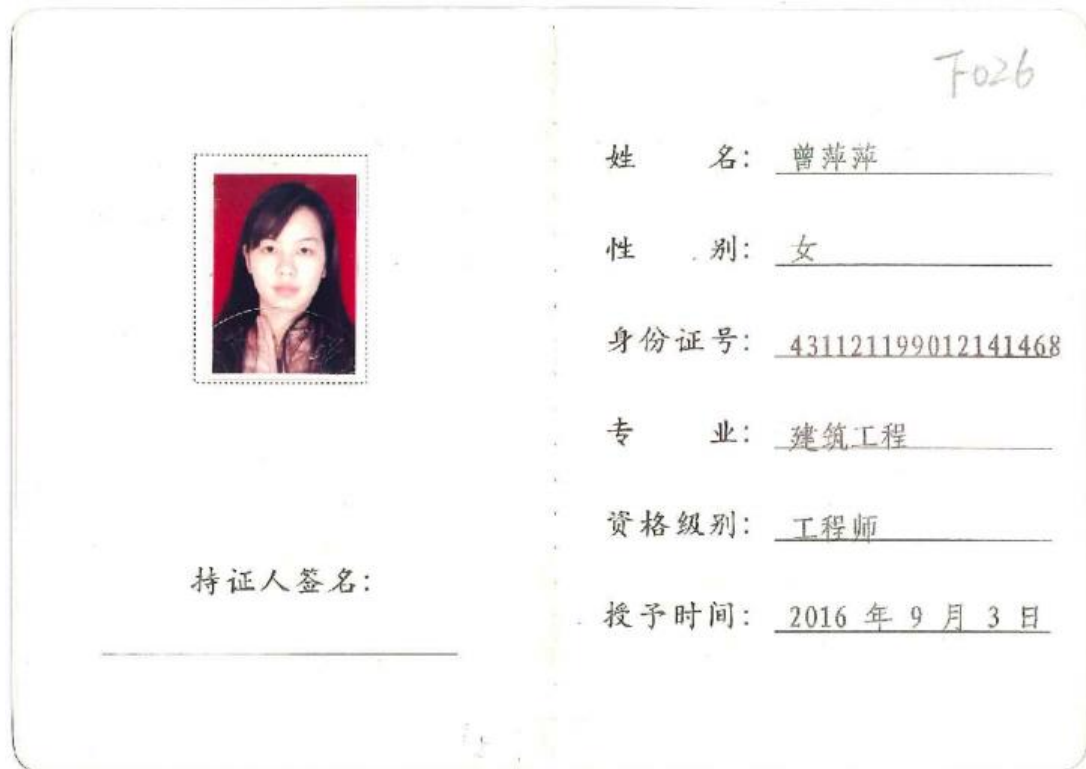 下026
姓 名: 曾萍萍
性 别: 女
身份证号: 431121199012141468
专 业: 建筑工程
资格级别: 工程师
授予时间: 2016 年 9 月 3 日
持证人签名: